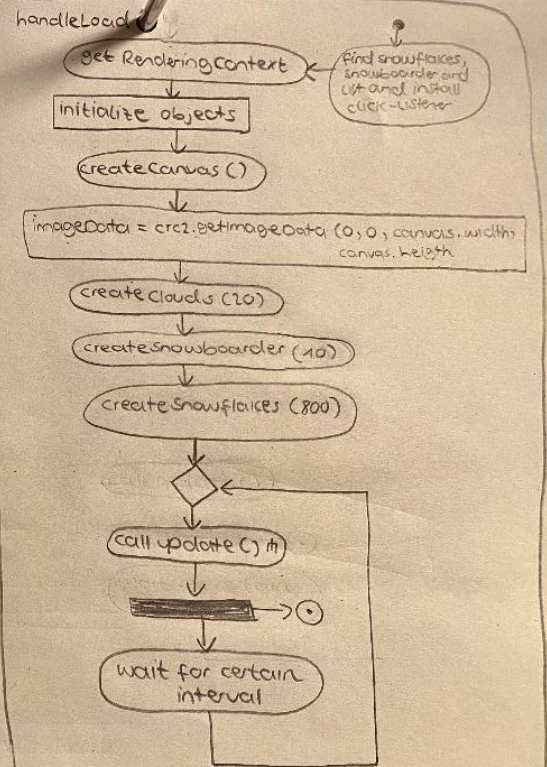 handleLoad
get RenderingContext
find snowflakes,
snowboarder and
list and install
click-Listener
initialize objects
createCanvas ()
imageData = crc2.getImageData (0,0, canvas.width,
canvas.heigth
createClouds (20)
createSnowboarder (10)
createSnowflakes (800)
call update ()
wait for certain
interval